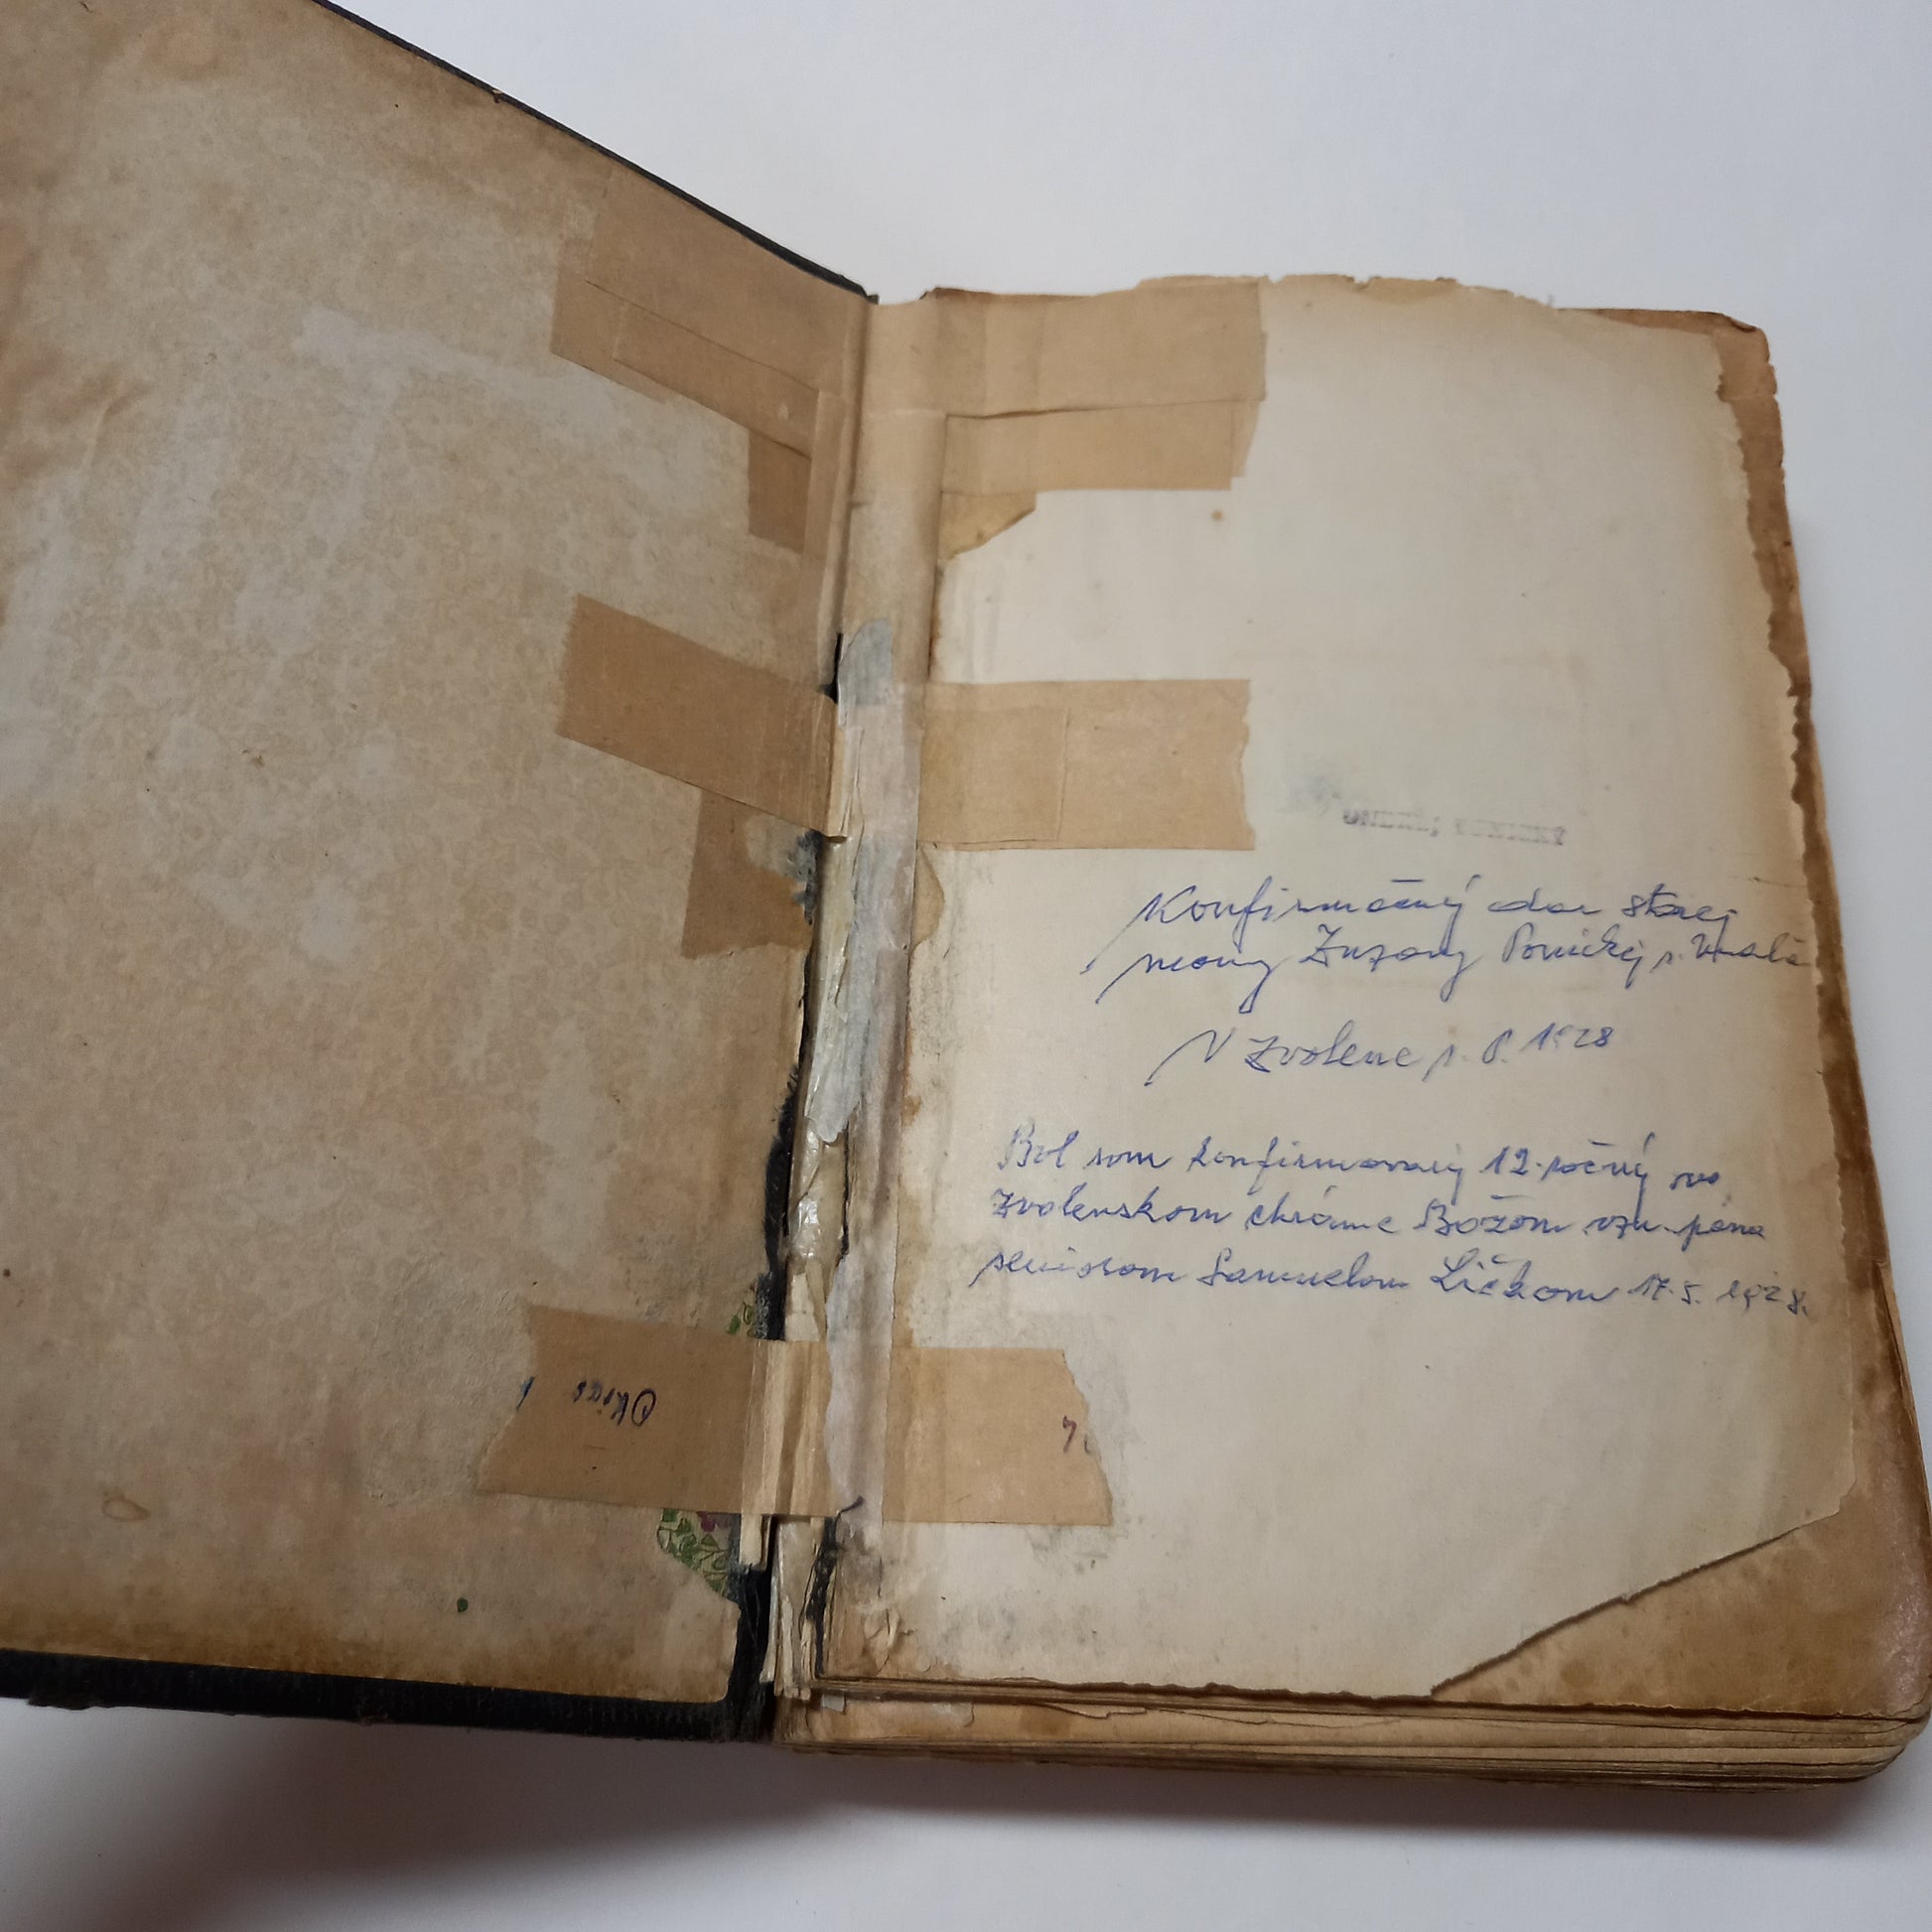 Okras
Konfirmačný dar starej
mamy Zuzany Ponickej r.
V Zvolene r. P. 1928
Bol som konfirmovaný 12-ročný vo
Zvolenskom chráme Božom vzn. pána
seniorom Samuelom Ličkom 17.5. 1928.